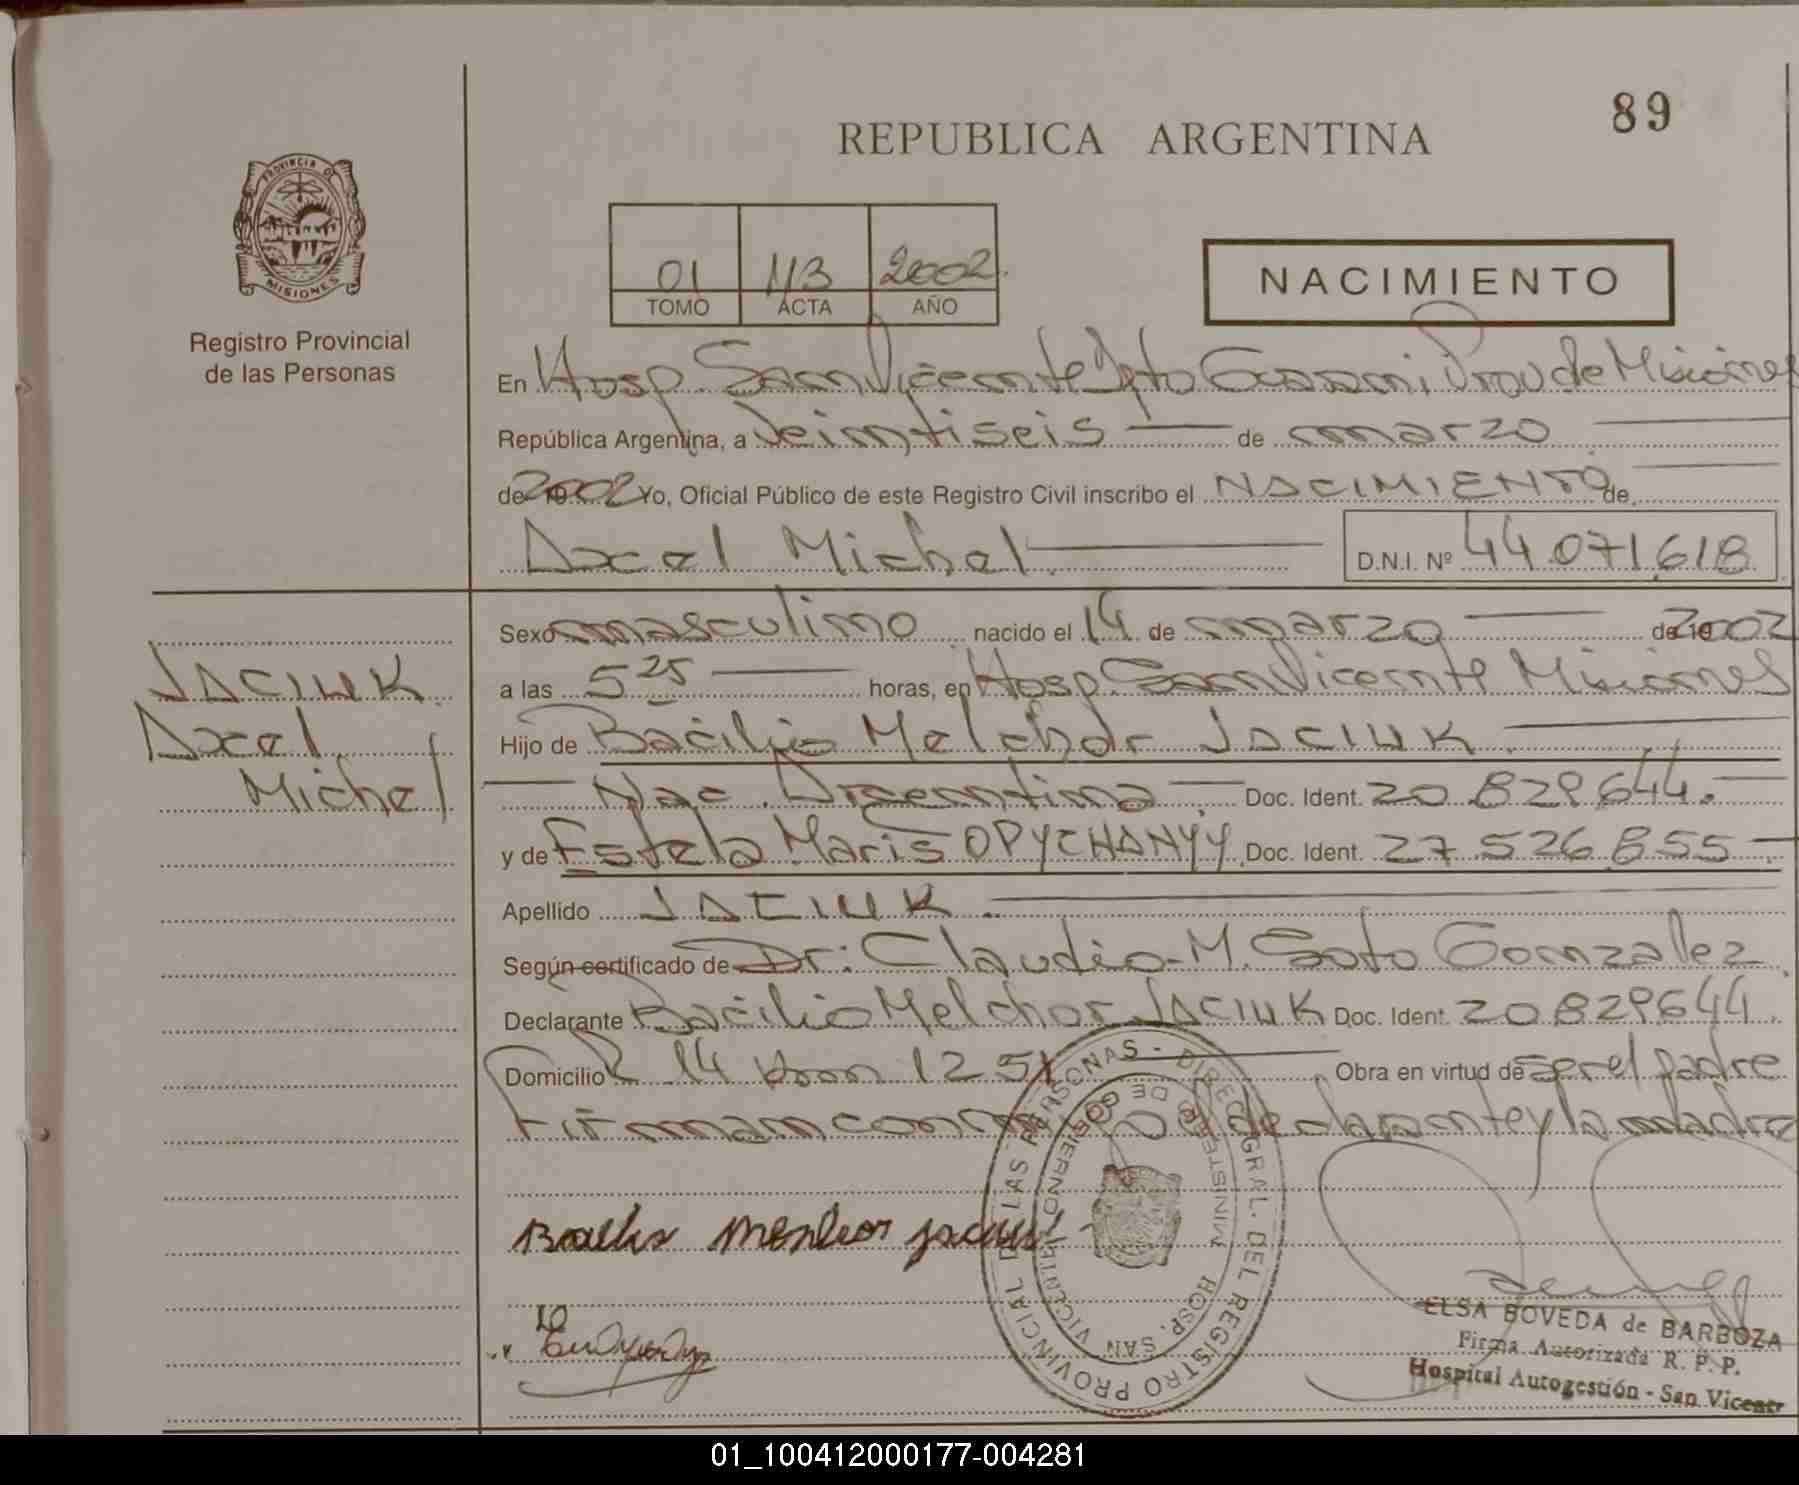 89
REPUBLICA ARGENTINA
PROVINCIA DE
MISIONES
Registro Provincial
de las Personas
01 113 2002
TOMO ACTA AÑO
NACIMIENTO
En Hosp. San Vicente Dpto Guarani, Prov de Misiones
República Argentina, a Veintiseis de marzo
de 2002 Yo, Oficial Público de este Registro Civil inscribo el NACIMIENTO de
Axel Michel D.N.I. Nº 44.071.618
Sexo masculino nacido el 14 de marzo de 2002
a las 5 25 horas, en Hosp. San Vicente Misiones
JACIUK
Axel
Michel
Hijo de Bacilio Melchor JACIUK
Nac. Argentina Doc. Ident. 20.829.644.
y de Estela Maris OPYCHANYY Doc. Ident. 27.526.855
Apellido JACIUK
Según certificado de Dr: Claudio M. Soto Gonzalez
Declarante Bacilio Melchor JACIUK Doc. Ident. 20.829.644.
Domicilio R 14 Km 1251 Obra en virtud de ser el padre
Firman conmigo el declarante y la madre
REGISTRO PROVINCIAL DE LAS PERSONAS - DIREC. GRAL. DEL
MINISTERIO DE GOBIERNO
HOSP. SAN VICENTE
ELSA BOVEDA de BARBOZA
Firma Autorizada R. P. P.
Hospital Autogestión - San Vicente
01_100412000177-004281